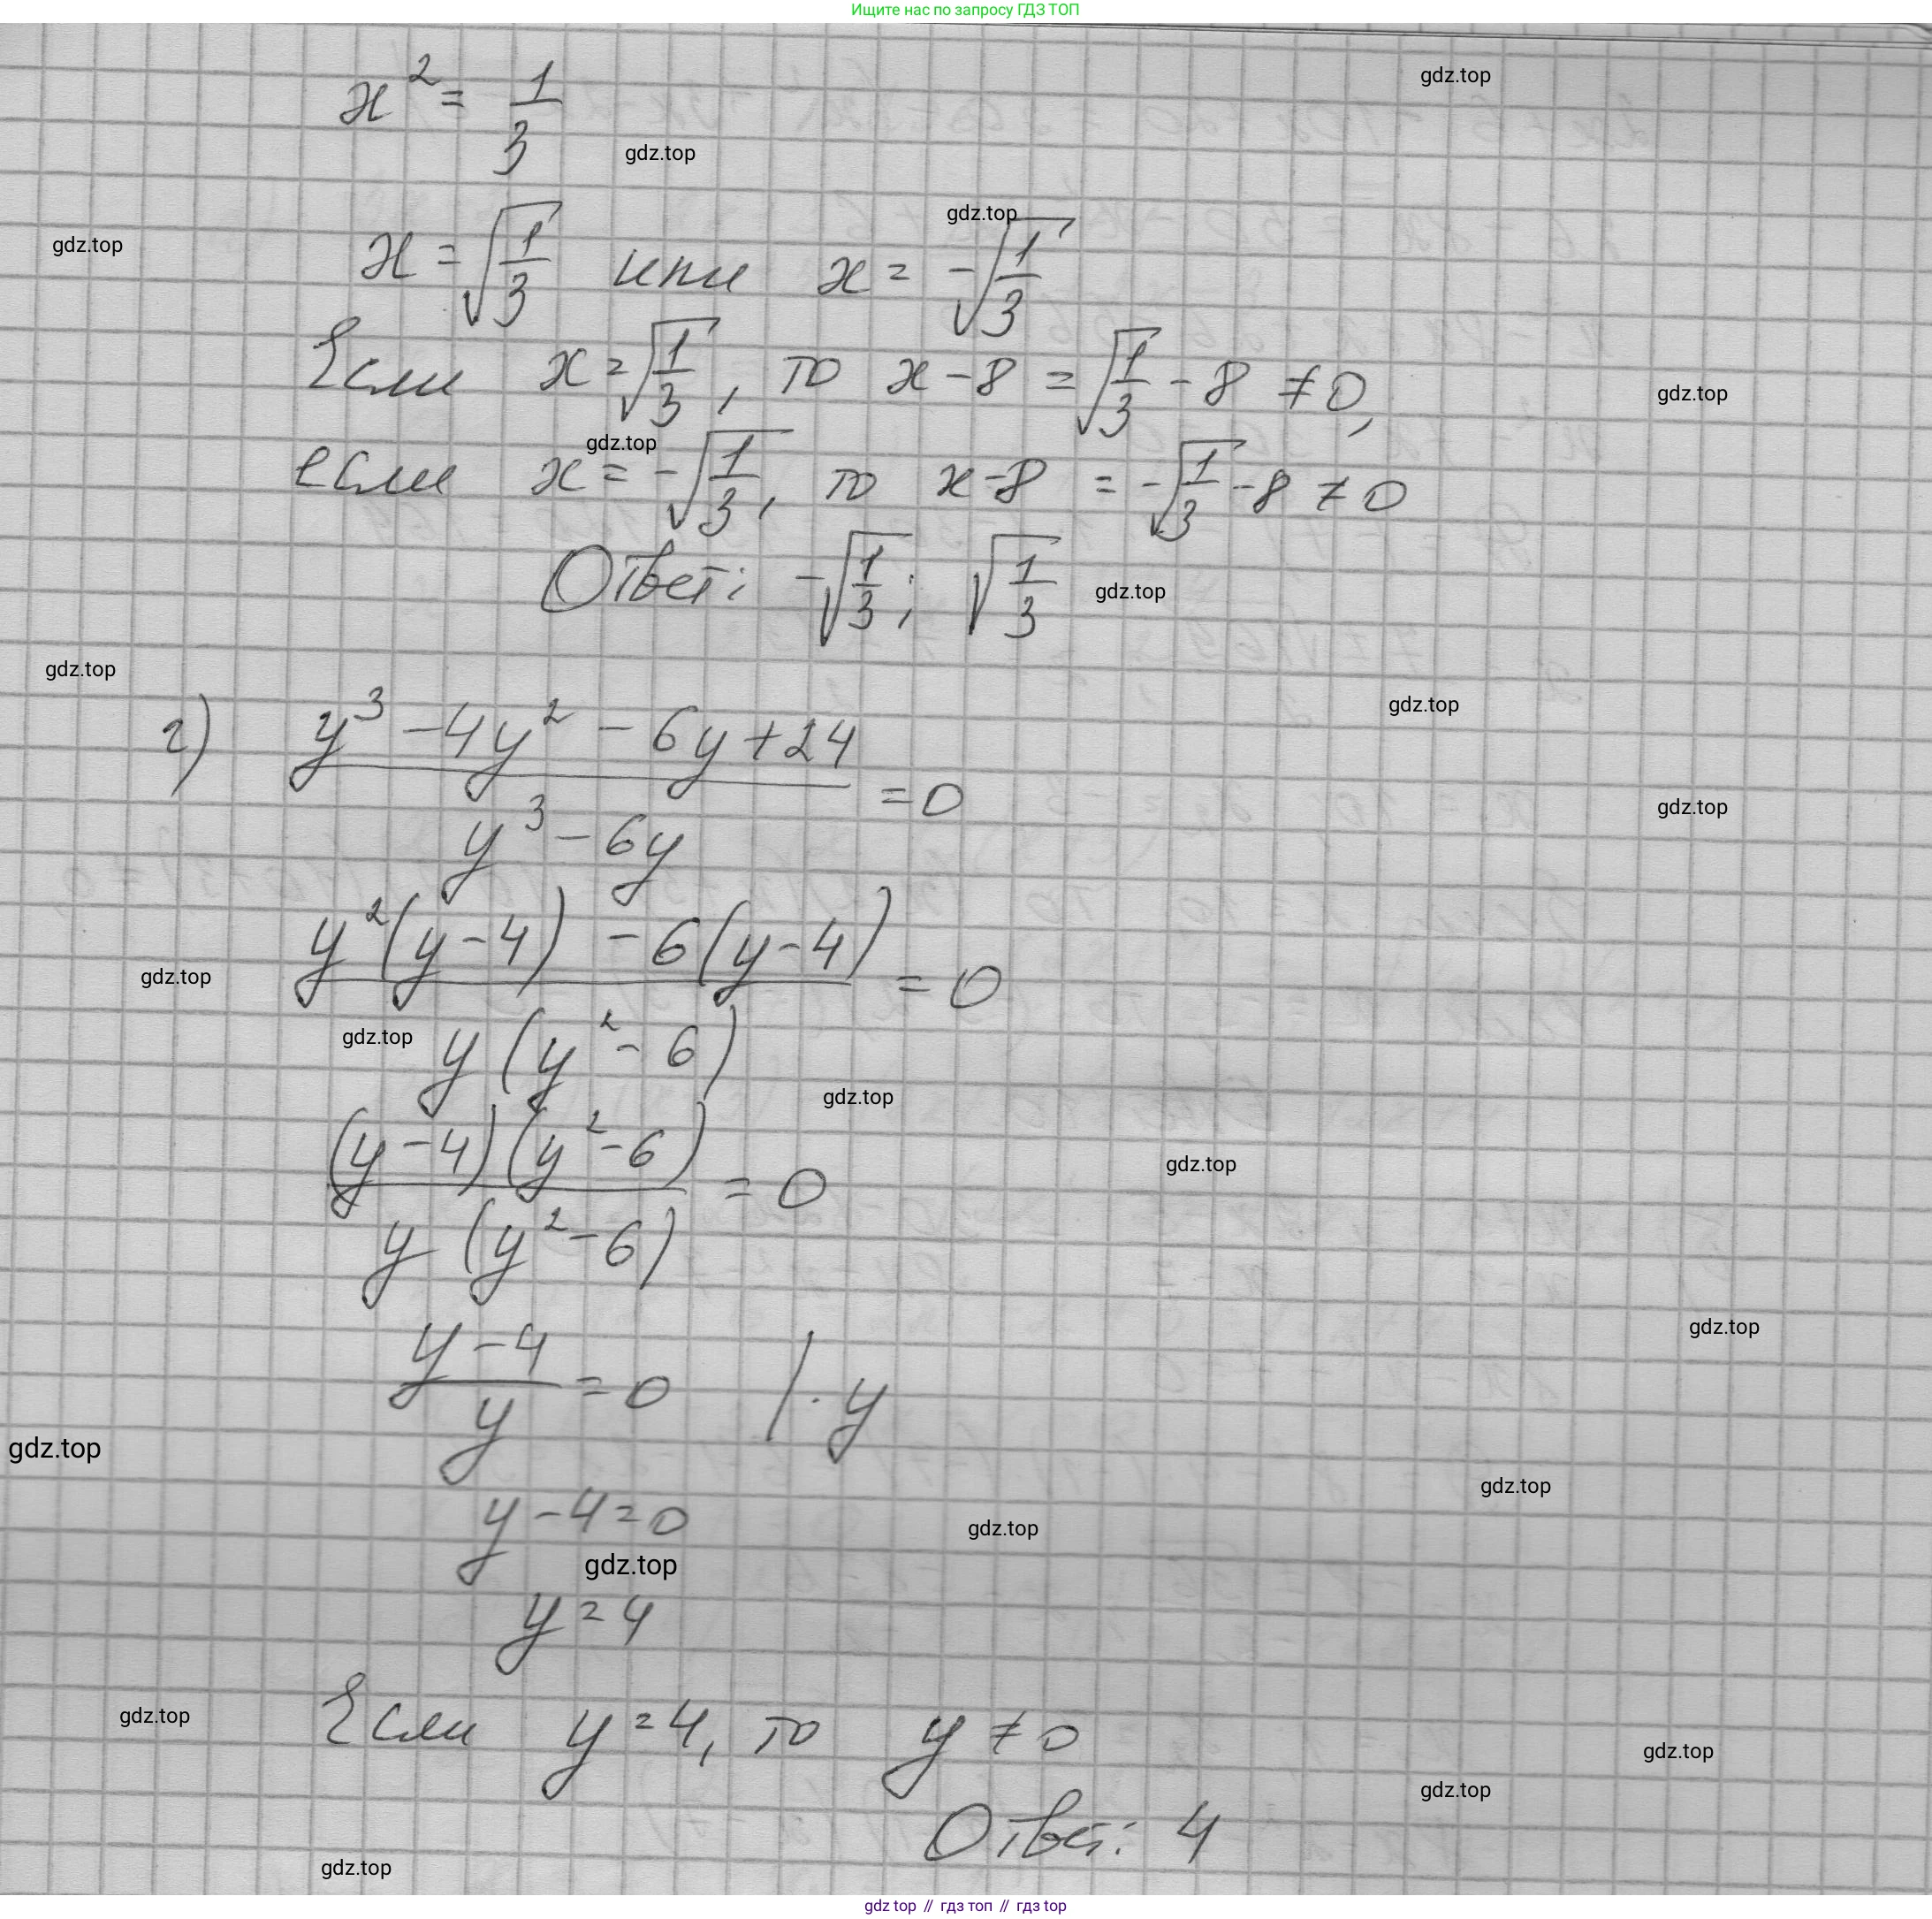 Ищите нас по запросу ГДЗ ТОП
gdz.top
x² = 1/3
gdz.top
gdz.top
gdz.top
x = √(1/3) или x = -√(1/3)
Если x = √(1/3), то x - 8 = √(1/3) - 8 ≠ 0,
gdz.top
gdz.top
если x = -√(1/3), то x - 8 = -√(1/3) - 8 ≠ 0
Ответ: -√(1/3); √(1/3)
gdz.top
gdz.top
gdz.top
г) (y³ - 4y² - 6y + 24)/(y³ - 6y) = 0
gdz.top
(y²(y - 4) - 6(y - 4))/(y(y² - 6)) = 0
gdz.top
gdz.top
gdz.top
((y - 4)(y² - 6))/(y(y² - 6)) = 0
gdz.top
gdz.top
(y - 4)/y = 0 | · y
gdz.top
gdz.top
y - 4 = 0
gdz.top
gdz.top
y = 4
gdz.top
Если y = 4, то y ≠ 0
gdz.top
gdz.top
Ответ: 4
gdz.top
gdz top // гдз топ // гдз top